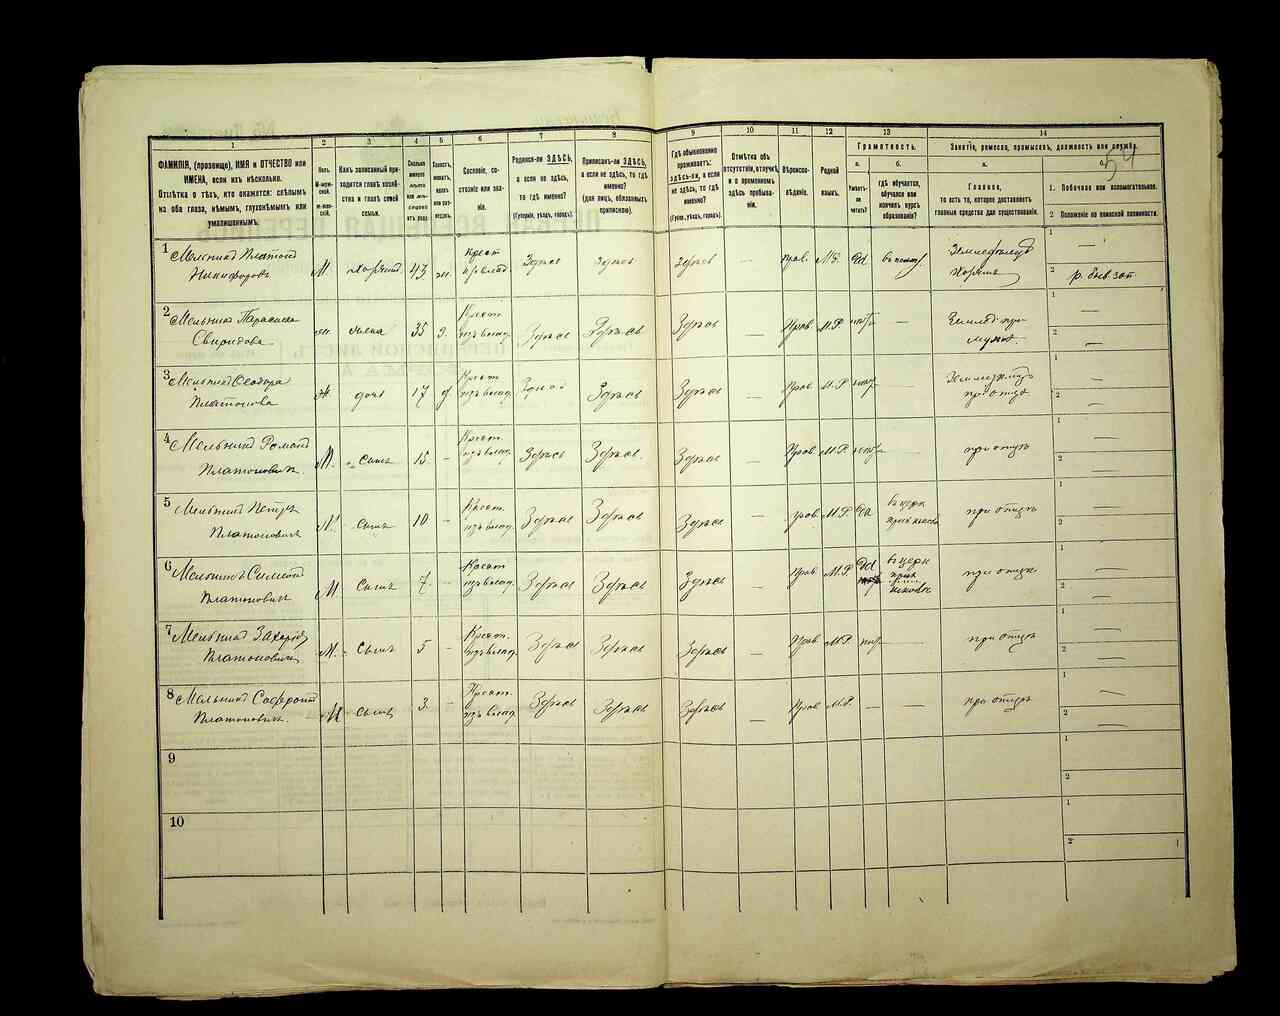 54
1 2 3 4 5 6 7 8 9 10 11 12 13 14
ФАМИЛІЯ, (прозвище), ИМЯ и ОТЧЕСТВО или
ИМЕНА, если ихъ нѣсколько.
Отмѣтка о тѣхъ, кто окажется: слѣпымъ
на оба глаза, нѣмымъ, глухонѣмымъ или
умалишеннымъ.
Полъ.
М-мужской.
Ж-женскій.
Какъ записанный приходится
главѣ хозяйства
и главѣ своей
семьи.
Сколько
минуло
лѣтъ
или мѣсяцевъ
отъ роду.
Холостъ,
женатъ,
вдовъ
или разведенъ.
Сословіе, состояніе
или званіе.
Родился-ли ЗДѢСЬ,
а если не здѣсь,
то гдѣ именно?
(Губернія, уѣздъ, городъ).
Приписанъ-ли ЗДѢСЬ,
а если не здѣсь, то гдѣ
именно?
(для лицъ, обязанныхъ
припискою).
Гдѣ обыкновенно
проживаетъ:
здѣсь-ли, а если
не здѣсь, то гдѣ
именно?
(Губерн., уѣздъ, городъ).
Отмѣтка объ
отсутствіи, отлучкѣ
и о временномъ
здѣсь пребываніи.
Вѣроисповѣданіе.
Родной
языкъ.
Грамотность.
а.
Умѣетъ-ли
читать?
б.
гдѣ обучается,
обучался или
кончилъ курсъ
образованія?
Занятіе, ремесло, промыселъ, должность или служба.
а.
Главное,
то есть то, которое доставляетъ
главныя средства для существованія.
1. Побочное или вспомогательное.
2. Положеніе по воинской повинности.
1 Мельникъ Платонъ
Никифоровъ
М. хозяинъ 43 ж. Крест. изъ влад. Здѣсь здѣсь здѣсь — прав. М.Р. да
Земледѣлецъ
хозяинъ
1 —
2 р. быв. зап.
2 Мельникъ
Свиридова
жена 35 Крест. изъ влад. Здѣсь Здѣсь Здѣсь — Прав. М.Р. нѣтъ —
при
мужѣ
1 —
2 —
3 Мельникъ Ѳеодора
Платонова
Ж. дочь 17 д. Крест. изъ влад. Здѣсь Здѣсь Здѣсь — Прав. М.Р. нѣтъ —
при отцѣ
1 —
2 —
4 Мельникъ Романъ
Платоновичъ.
М. сынъ 15 - Крест. изъ влад. Здѣсь Здѣсь. Здѣсь — Прав. М.Р. нѣтъ —
при отцѣ
1 —
2 —
5 Мельникъ Петръ
Платоновичъ
М. сынъ 10 - Крест. изъ влад. Здѣсь Здѣсь Здѣсь — прав. М.Р. да
въ церк
при отцѣ
1 —
2 —
6 Мельникъ Симеонъ
Платоновичъ
М сынъ 7. - Крест. изъ влад. Здѣсь Здѣсь Здѣсь — Прав. М.Р. да
въ церк
прих
школѣ
при отцѣ
1 —
2 —
7 Мельникъ Захарій
Платоновичъ
М. сынъ 5 - Крест. изъ влад. Здѣсь Здѣсь Здѣсь — Прав М.Р. нѣтъ —
при отцѣ
1 —
2 —
8 Мельникъ Софронъ
Платоновичъ.
М сынъ 3. - Крест. изъ влад. Здѣсь Здѣсь Здѣсь — Прав. М.Р. — —
при отцѣ
1 —
2 —
9
1
2
10
1
2